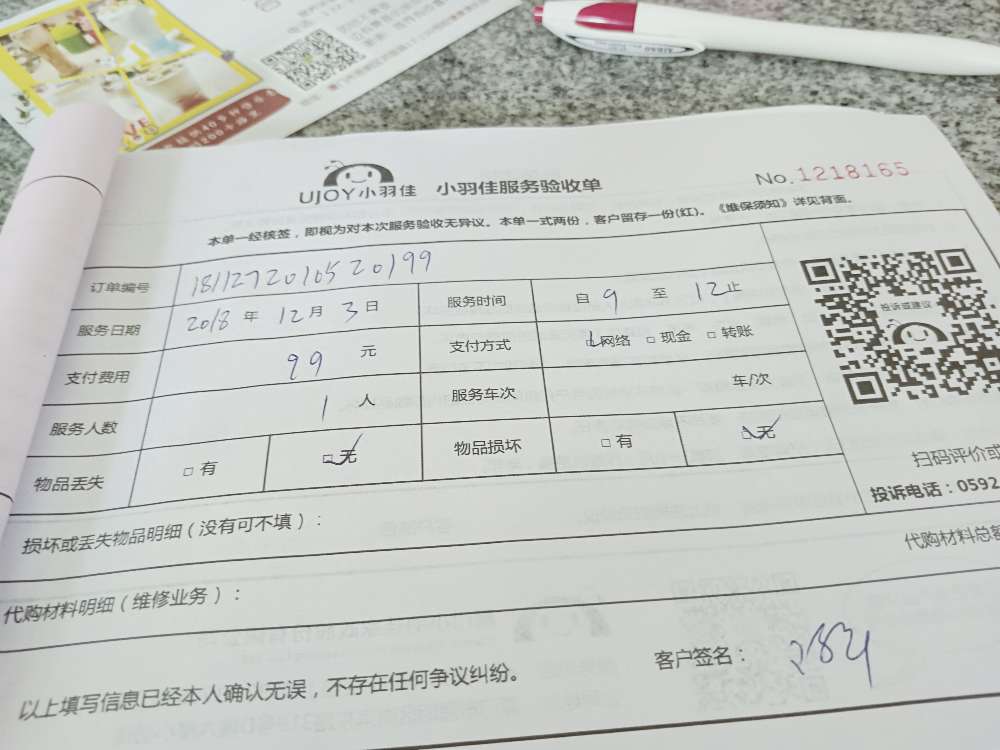 UJOY小羽佳 小羽佳服务验收单 No.1218165
本单一经核签，即视为对本次服务验收无异议。本单一式两份，客户留存一份(红)。《维保须知》详见背面。
订单编号 1811272010520199
服务日期 2018年12月3日 服务时间 自9至12止
支付费用 99元 支付方式 □网络 □现金 □转账
服务人数 1人 服务车次 车/次
物品丢失 □有 □无 物品损坏 □有 □无
投诉或建议
扫码评价或
投诉电话：0592
损坏或丢失物品明细（没有可不填）：
代购材料总额
代购材料明细（维修业务）：
以上填写信息已经本人确认无误，不存在任何争议纠纷。 客户签名：